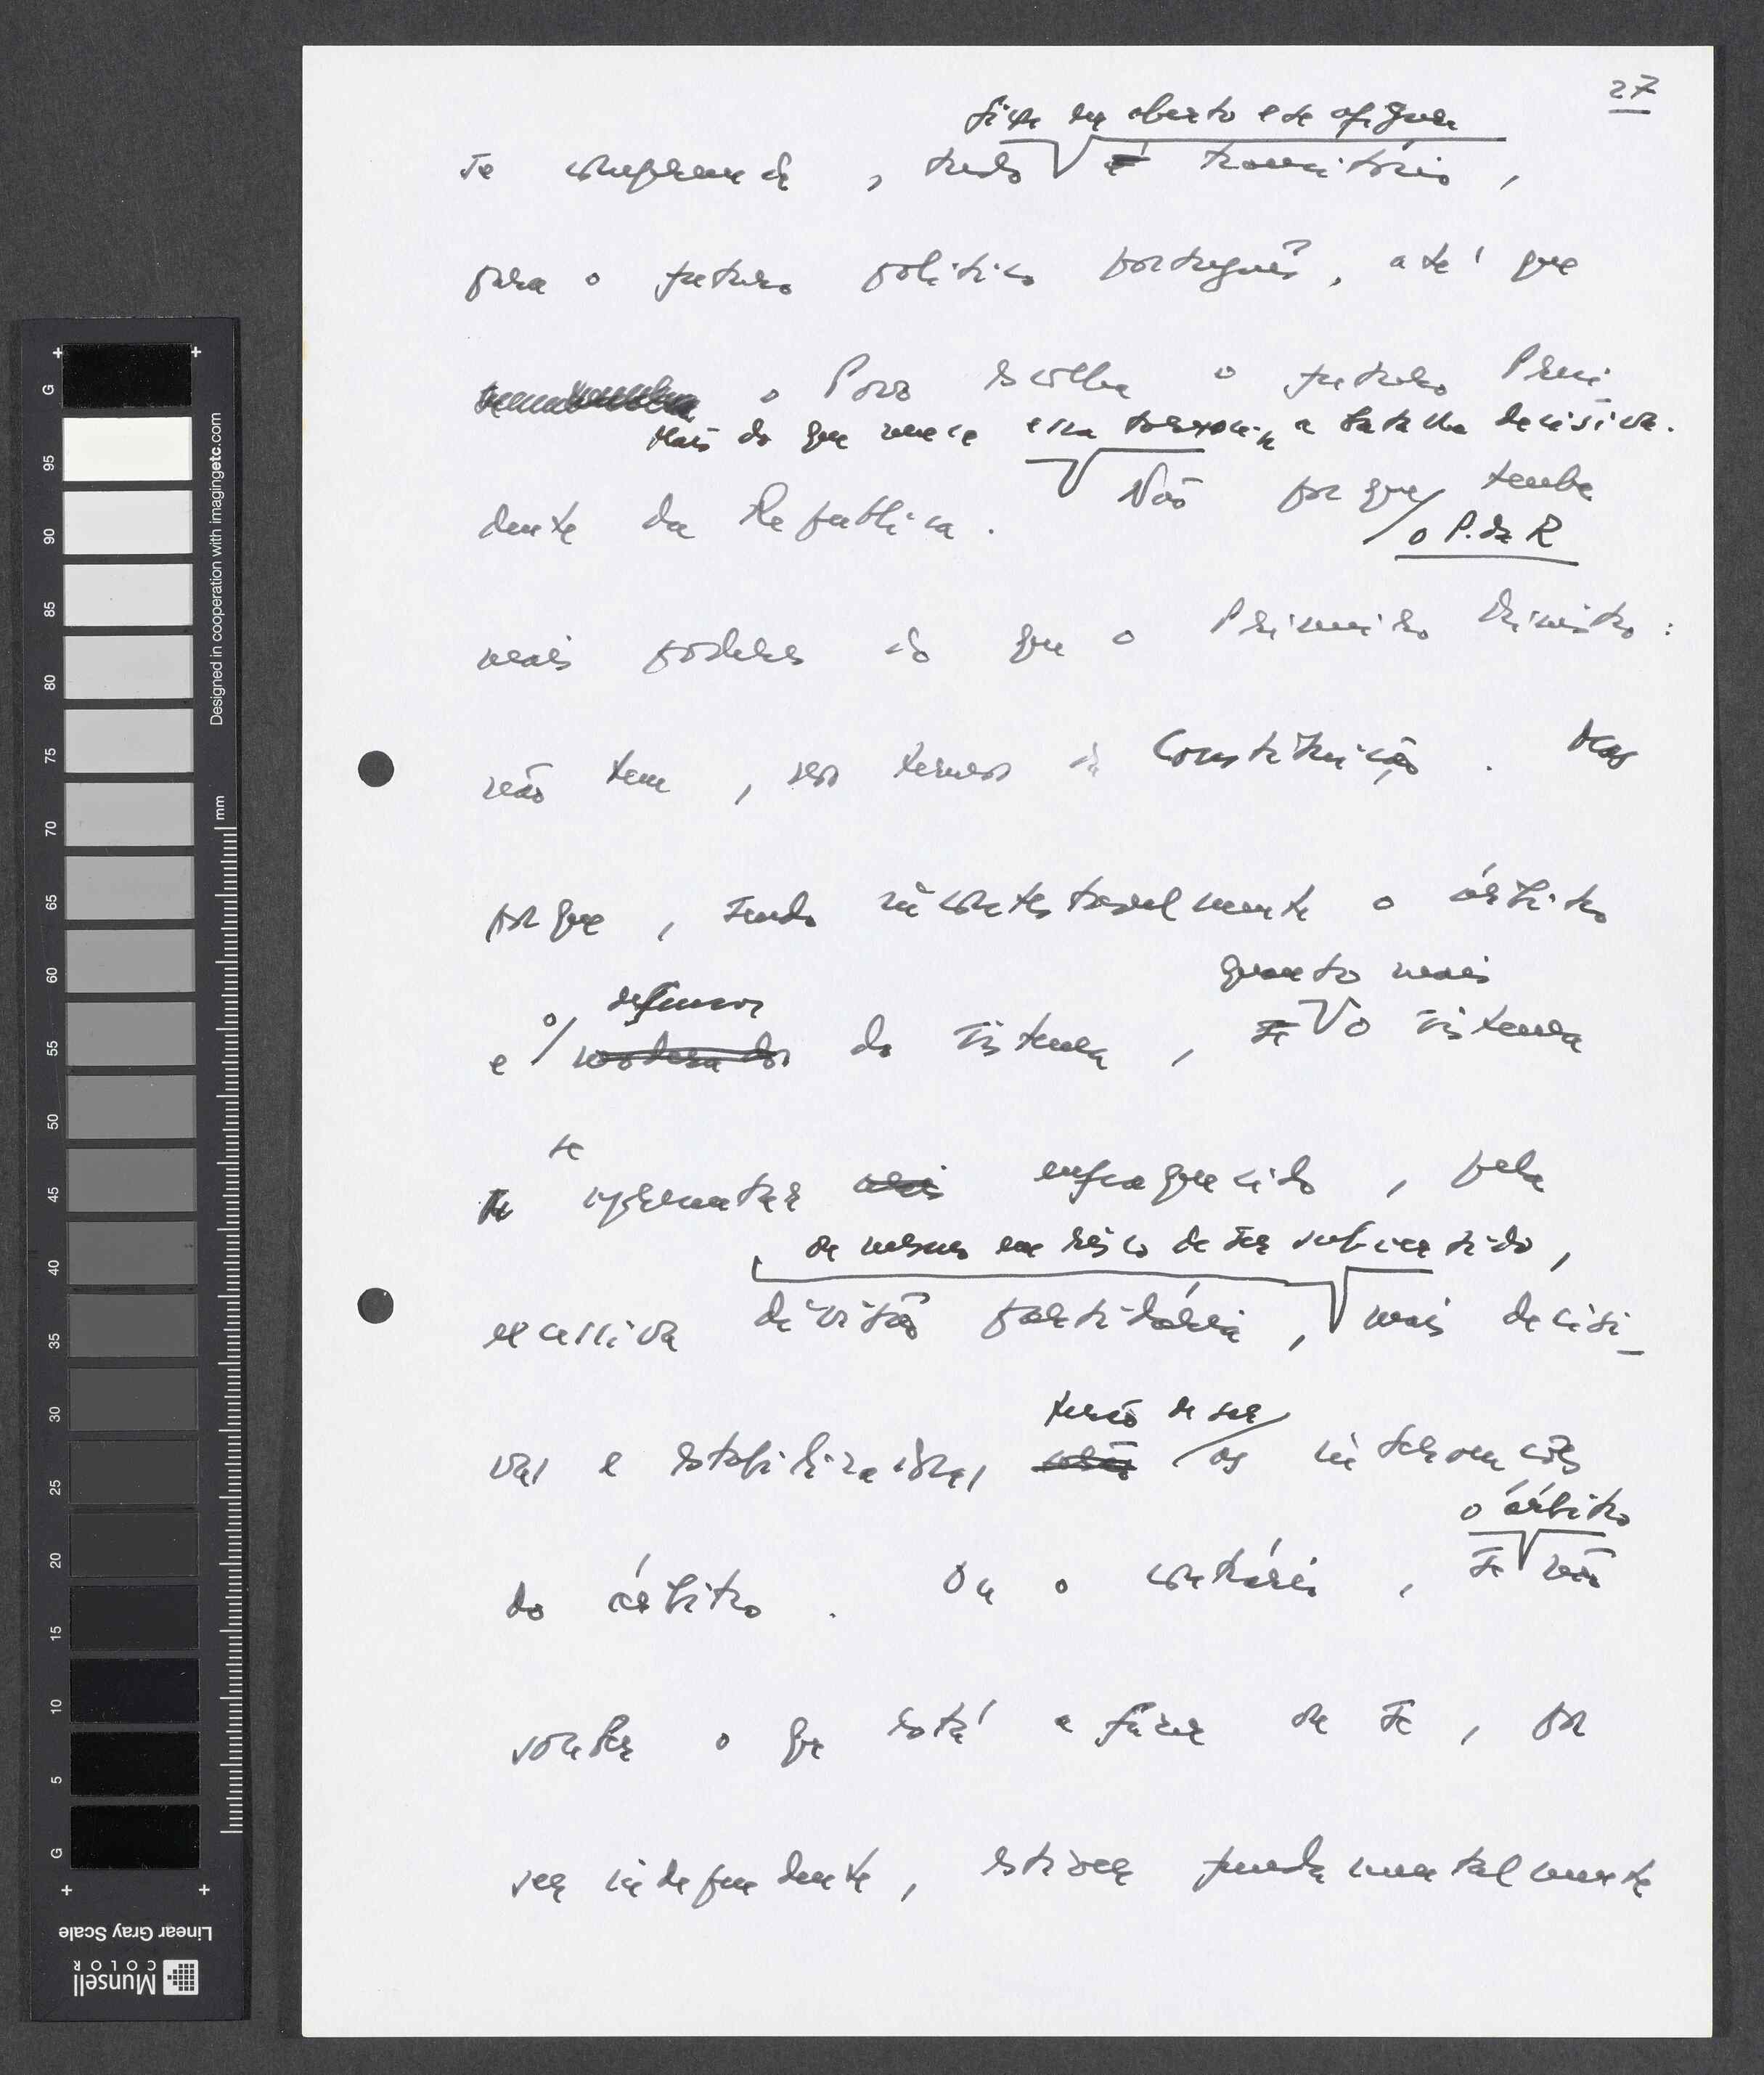 27
fica em aberto e se afigura
se compreende, tudo é transitório,
para o futuro político português, até que
o Povo escolha o futuro Presi
Mais do que nunca essa será a batalha decisiva.
dente da República. Não porque tenha
o P. da R
mais poderes do que o Primeiro Ministro:
não tem, nos termos da Constituição. Mas
porque, sendo incontestavelmente o árbitro
quanto mais
o defensor
e moderador do sistema, se o sistema
se
se apresentar mais enfraquecido, pela
ou mesmo em risco de ser subvertido,
excessiva divisão partidária, mais decisi_
vas e estabilizadoras
terão de ser
as intervenções
o árbitro
do árbitro. Ou o contrário, se não
souber o que está a fazer ou se, por
ser independente, estiver fundamentalmente
Designed in cooperation with imagingetc.com
mm
+ +
G
95
90
85
80
75
70
65
60
55
50
45
40
35
30
25
20
15
10
5
G
+ +
Linear Gray Scale
Munsell
COLOR